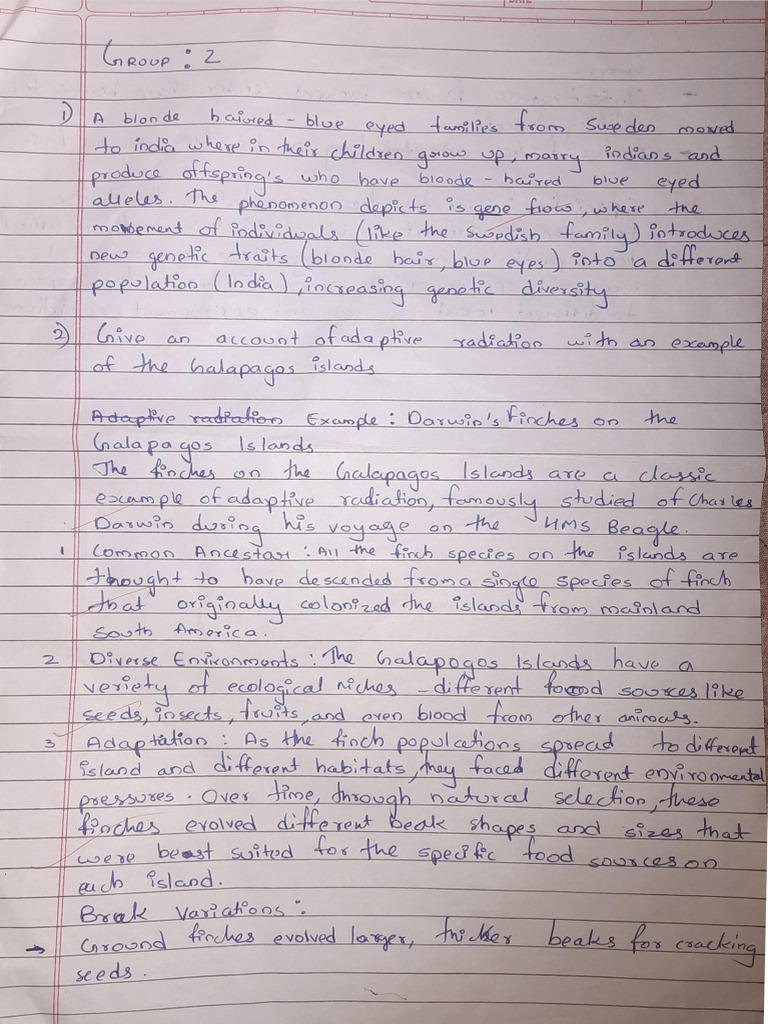 DATE
GROUP : 2
1) A blonde haired - blue eyed families from Sweden moved
to india where in their children grow up, marry indians and
produce offspring's who have blonde - haired blue eyed
alleles. The phenomenon depicts is gene flow, where the
movement of individuals (like the swedish family) introduces
new genetic traits (blonde hair, blue eyes) into a different
population (India), increasing genetic diversity
2) Give an account of adaptive radiation with an example
of the Galapagos islands
Adaptive radiation Example : Darwin's Finches on the
Galapagos Islands
The finches on the Galapagos Islands are a classic
example of adaptive radiation, famously studied of Charles
Darwin during his voyage on the HMS Beagle.
1 Common Ancestor : All the finch species on the islands are
thought to have descended from a single species of finch
that originally colonized the islands from mainland
South America.
2 Diverse Environments : The Galapogos Islands have a
veriety of ecological niches - different food sources like
seeds, insects, fruits, and even blood from other animals.
3 Adaptation : As the finch populations spread to different
island and different habitats, they faced different environmental
pressures. Over time, through natural selection, these
finches evolved different beak shapes and sizes that
were best suited for the specific food sources on
each island.
Break Variations :
→ Ground finches evolved larger, thicker beaks for cracking
seeds.